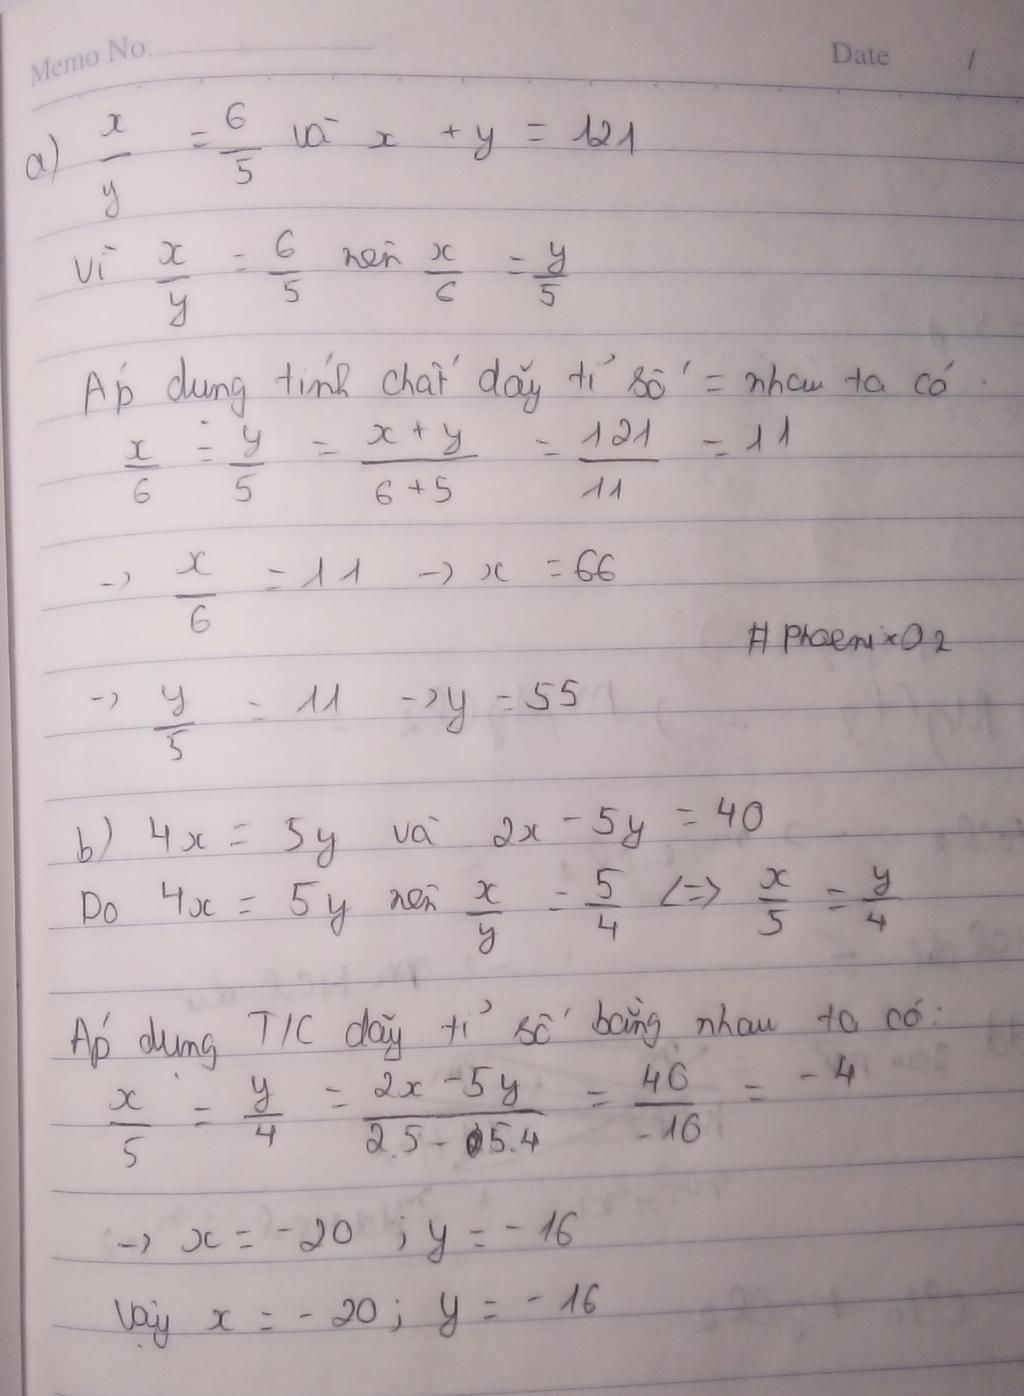 Memo No.
Date
a) x/y = 6/5 và x + y = 121
Vì x/y = 6/5 nên x/6 = y/5
Áp dụng tính chất dãy tỉ số = nhau ta có.
x/6 = y/5 = (x + y)/(6 + 5) = 121/11 = 11
-> x/6 = 11 -> x = 66
# Phoenix02
-> y/5 = 11 -> y = 55
b) 4x = 5y và 2x - 5y = 40
Do 4x = 5y nên x/y = 5/4 <=> x/5 = y/4
Áp dụng T/C dãy tỉ số bằng nhau ta có:
x/5 = y/4 = (2x - 5y)/(2.5 - 5.4) = 40/-16 = -4
-> x = -20 ; y = -16
Vậy x = -20 ; y = -16